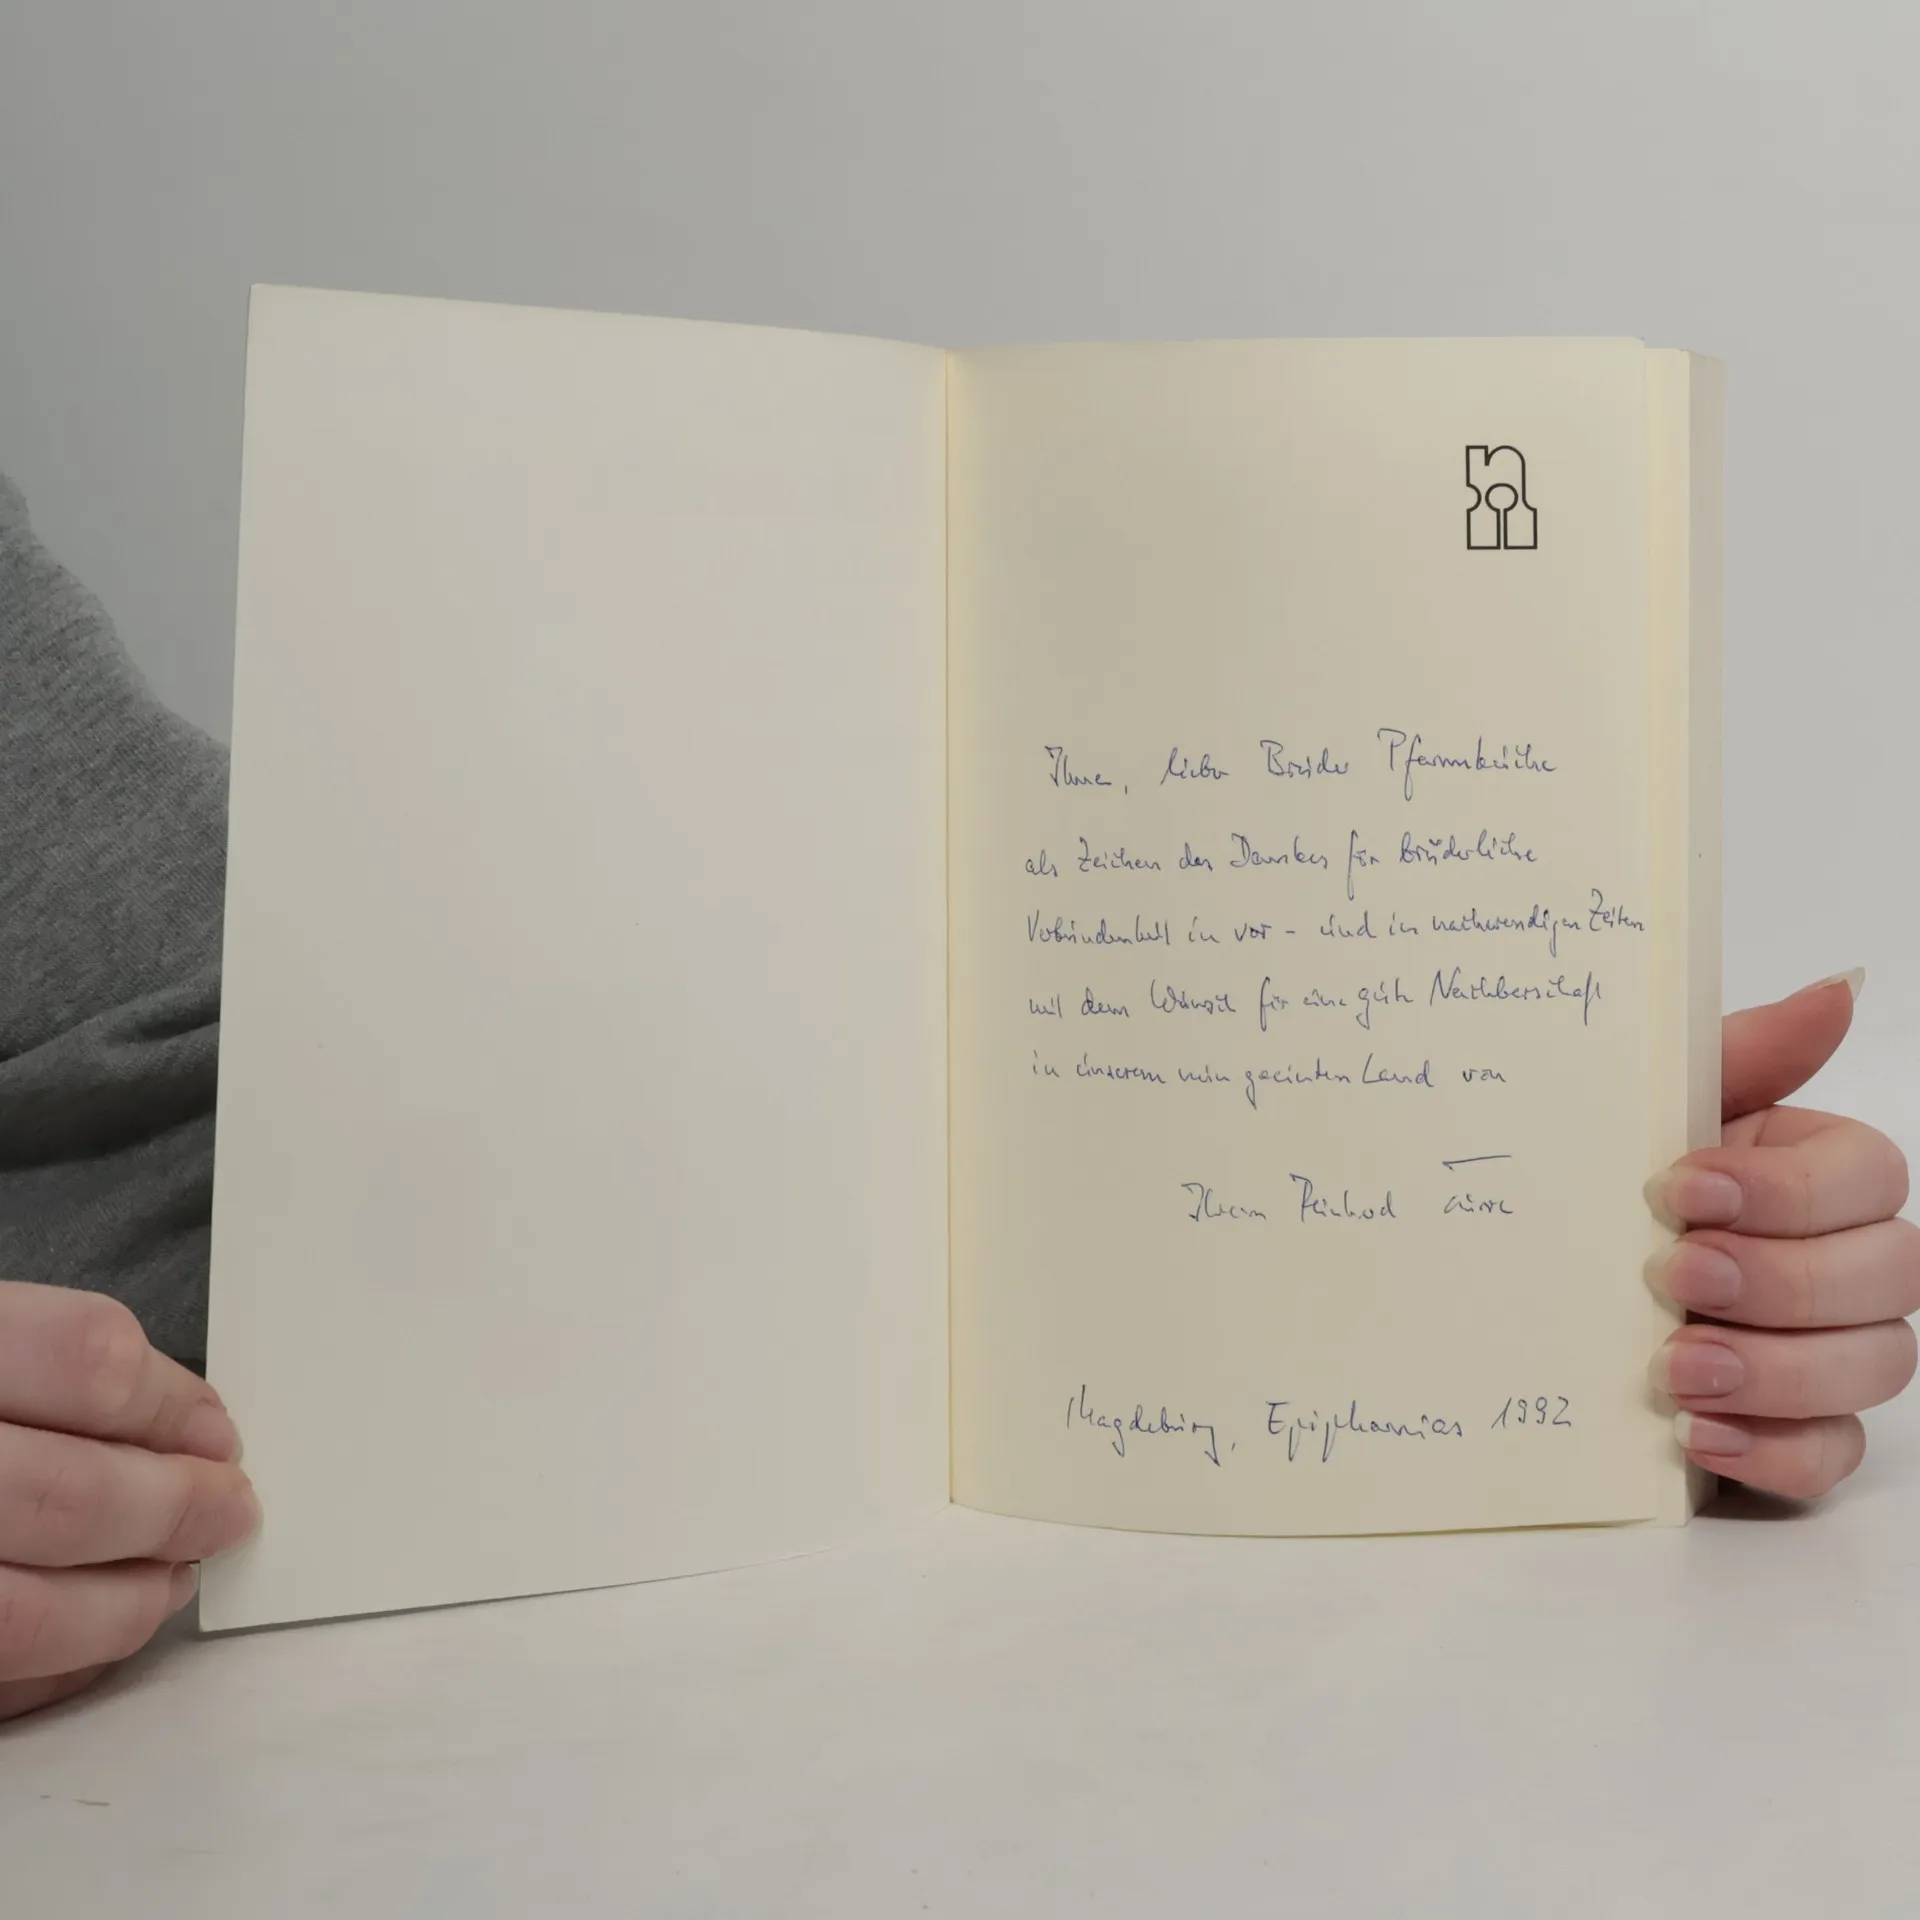 Ihnen, lieber Bruder Pfannkuche
als Zeichen des Dankes für brüderliche
Verbundenheit in vor- und in nachwendigen Zeiten
mit dem Wunsch für eine gute Nachbarschaft
in unserem nun geeinten Land von
Ihrem
Magdeburg, Epiphanias 1992